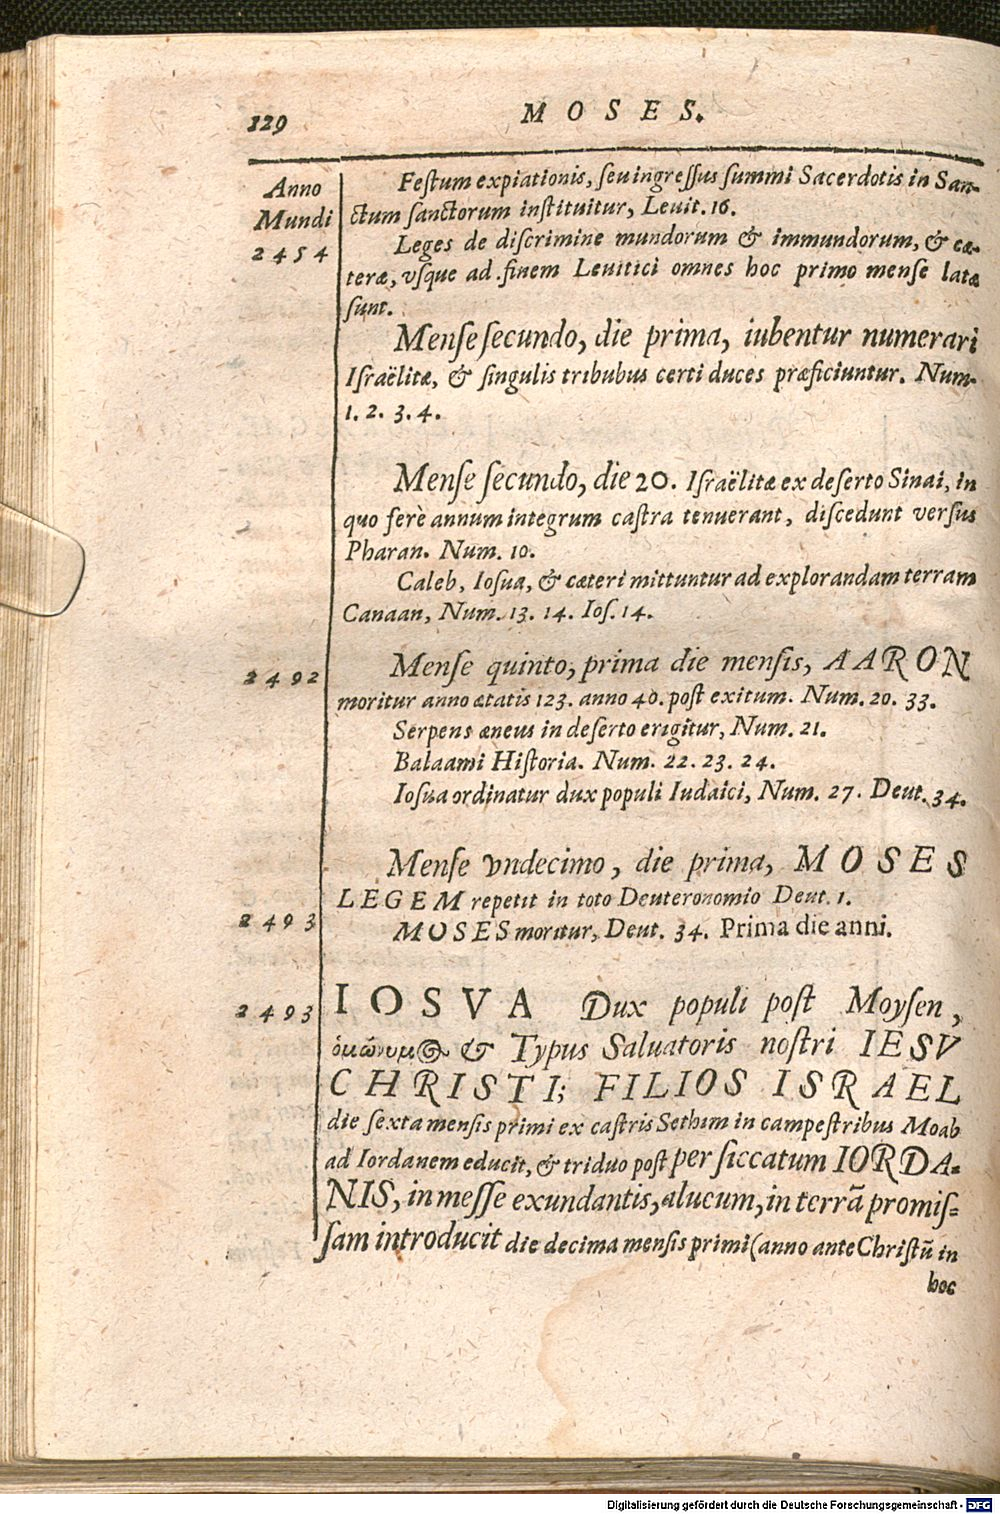 129 MOSES.
Anno
Mundi
2454
Festum expiationis, seu ingressus summi Sacerdotis in San-
ctum sanctorum instituitur, Leuit. 16.
Leges de discrimine mundorum & immundorum, & cæ-
teræ, vsque ad finem Leuitici omnes hoc primo mense latæ
sunt.
Mense secundo, die prima, iubentur numerari
Israëlitæ, & singulis tribubus certi duces præficiuntur. Num.
1. 2. 3. 4.
Mense secundo, die 20. Israëlitæ ex deserto Sinai, in
quo ferè annum integrum castra tenuerant, discedunt versus
Pharan. Num. 10.
Caleb, Iosua, & cæteri mittuntur ad explorandam terram
Canaan, Num. 13. 14. Ios. 14.
2492
Mense quinto, prima die mensis, AARON
moritur anno ætatis 123. anno 40. post exitum. Num. 20. 33.
Serpens æneus in deserto erigitur, Num. 21.
Balaami Historia. Num. 22. 23. 24.
Iosua ordinatur dux populi Iudaici, Num. 27. Deut. 34.
Mense vndecimo, die prima, MOSES
LEGEM repetit in toto Deuteronomio Deut. 1.
2493
MOSES moritur, Deut. 34. Prima die anni.
2493
IOSVA Dux populi post Moysen,
ὁμώνυμος & Typus Saluatoris nostri IESV
CHRISTI; FILIOS ISRAEL
die sexta mensis primi ex castris Sethim in campestribus Moab
ad Iordanem educit, & triduo post per siccatum IORDA-
NIS, in messe exundantis, alueum, in terrā promis-
sam introducit die decima mensis primi (anno ante Christū in
hoc
Digitalisierung gefördert durch die Deutsche Forschungsgemeinschaft - DFG